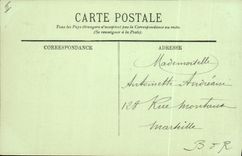 CARTE POSTALE
Tous les Pays étrangers n'acceptent pas la Correspondance au recto.
(Se renseigner à la Poste).
CORRESPONDANCE
ADRESSE
Mademoiselle
Antoinette Andréani
128 Rue
Marseille
B d R